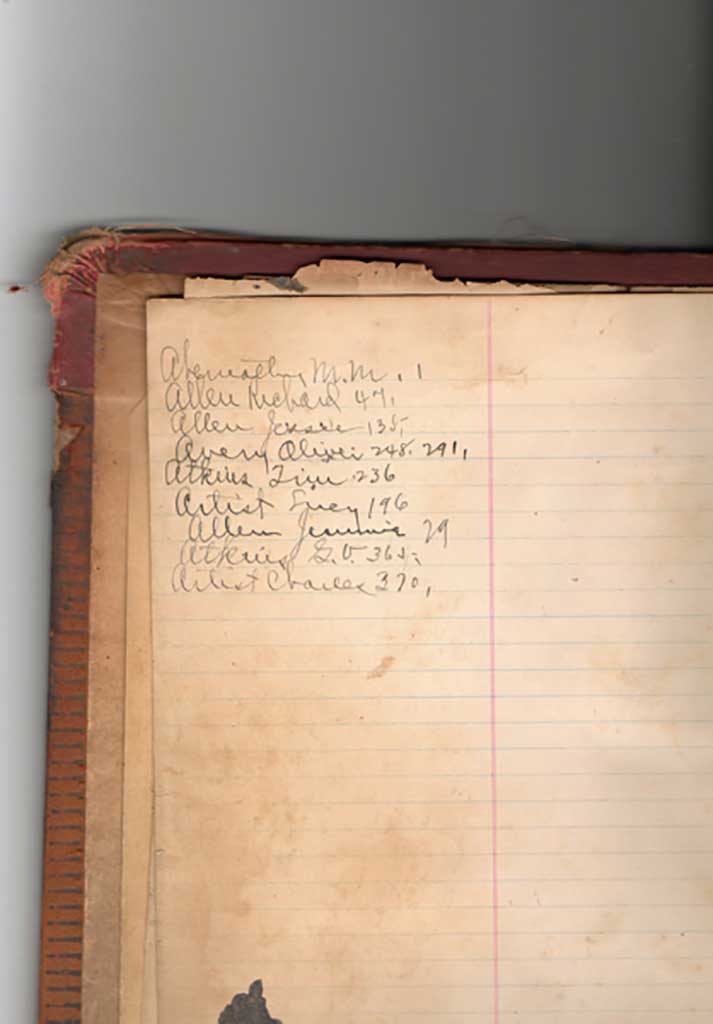 Abernathy M.M. 1
Allen Richard 47,
Allen Jessie 135,
Avery Oliver 248. 291,
Atkins Tim 236
Artist Lucy 196
Allen Jimmie 29
Atkins G.V. 365,
Artist Charles 370,